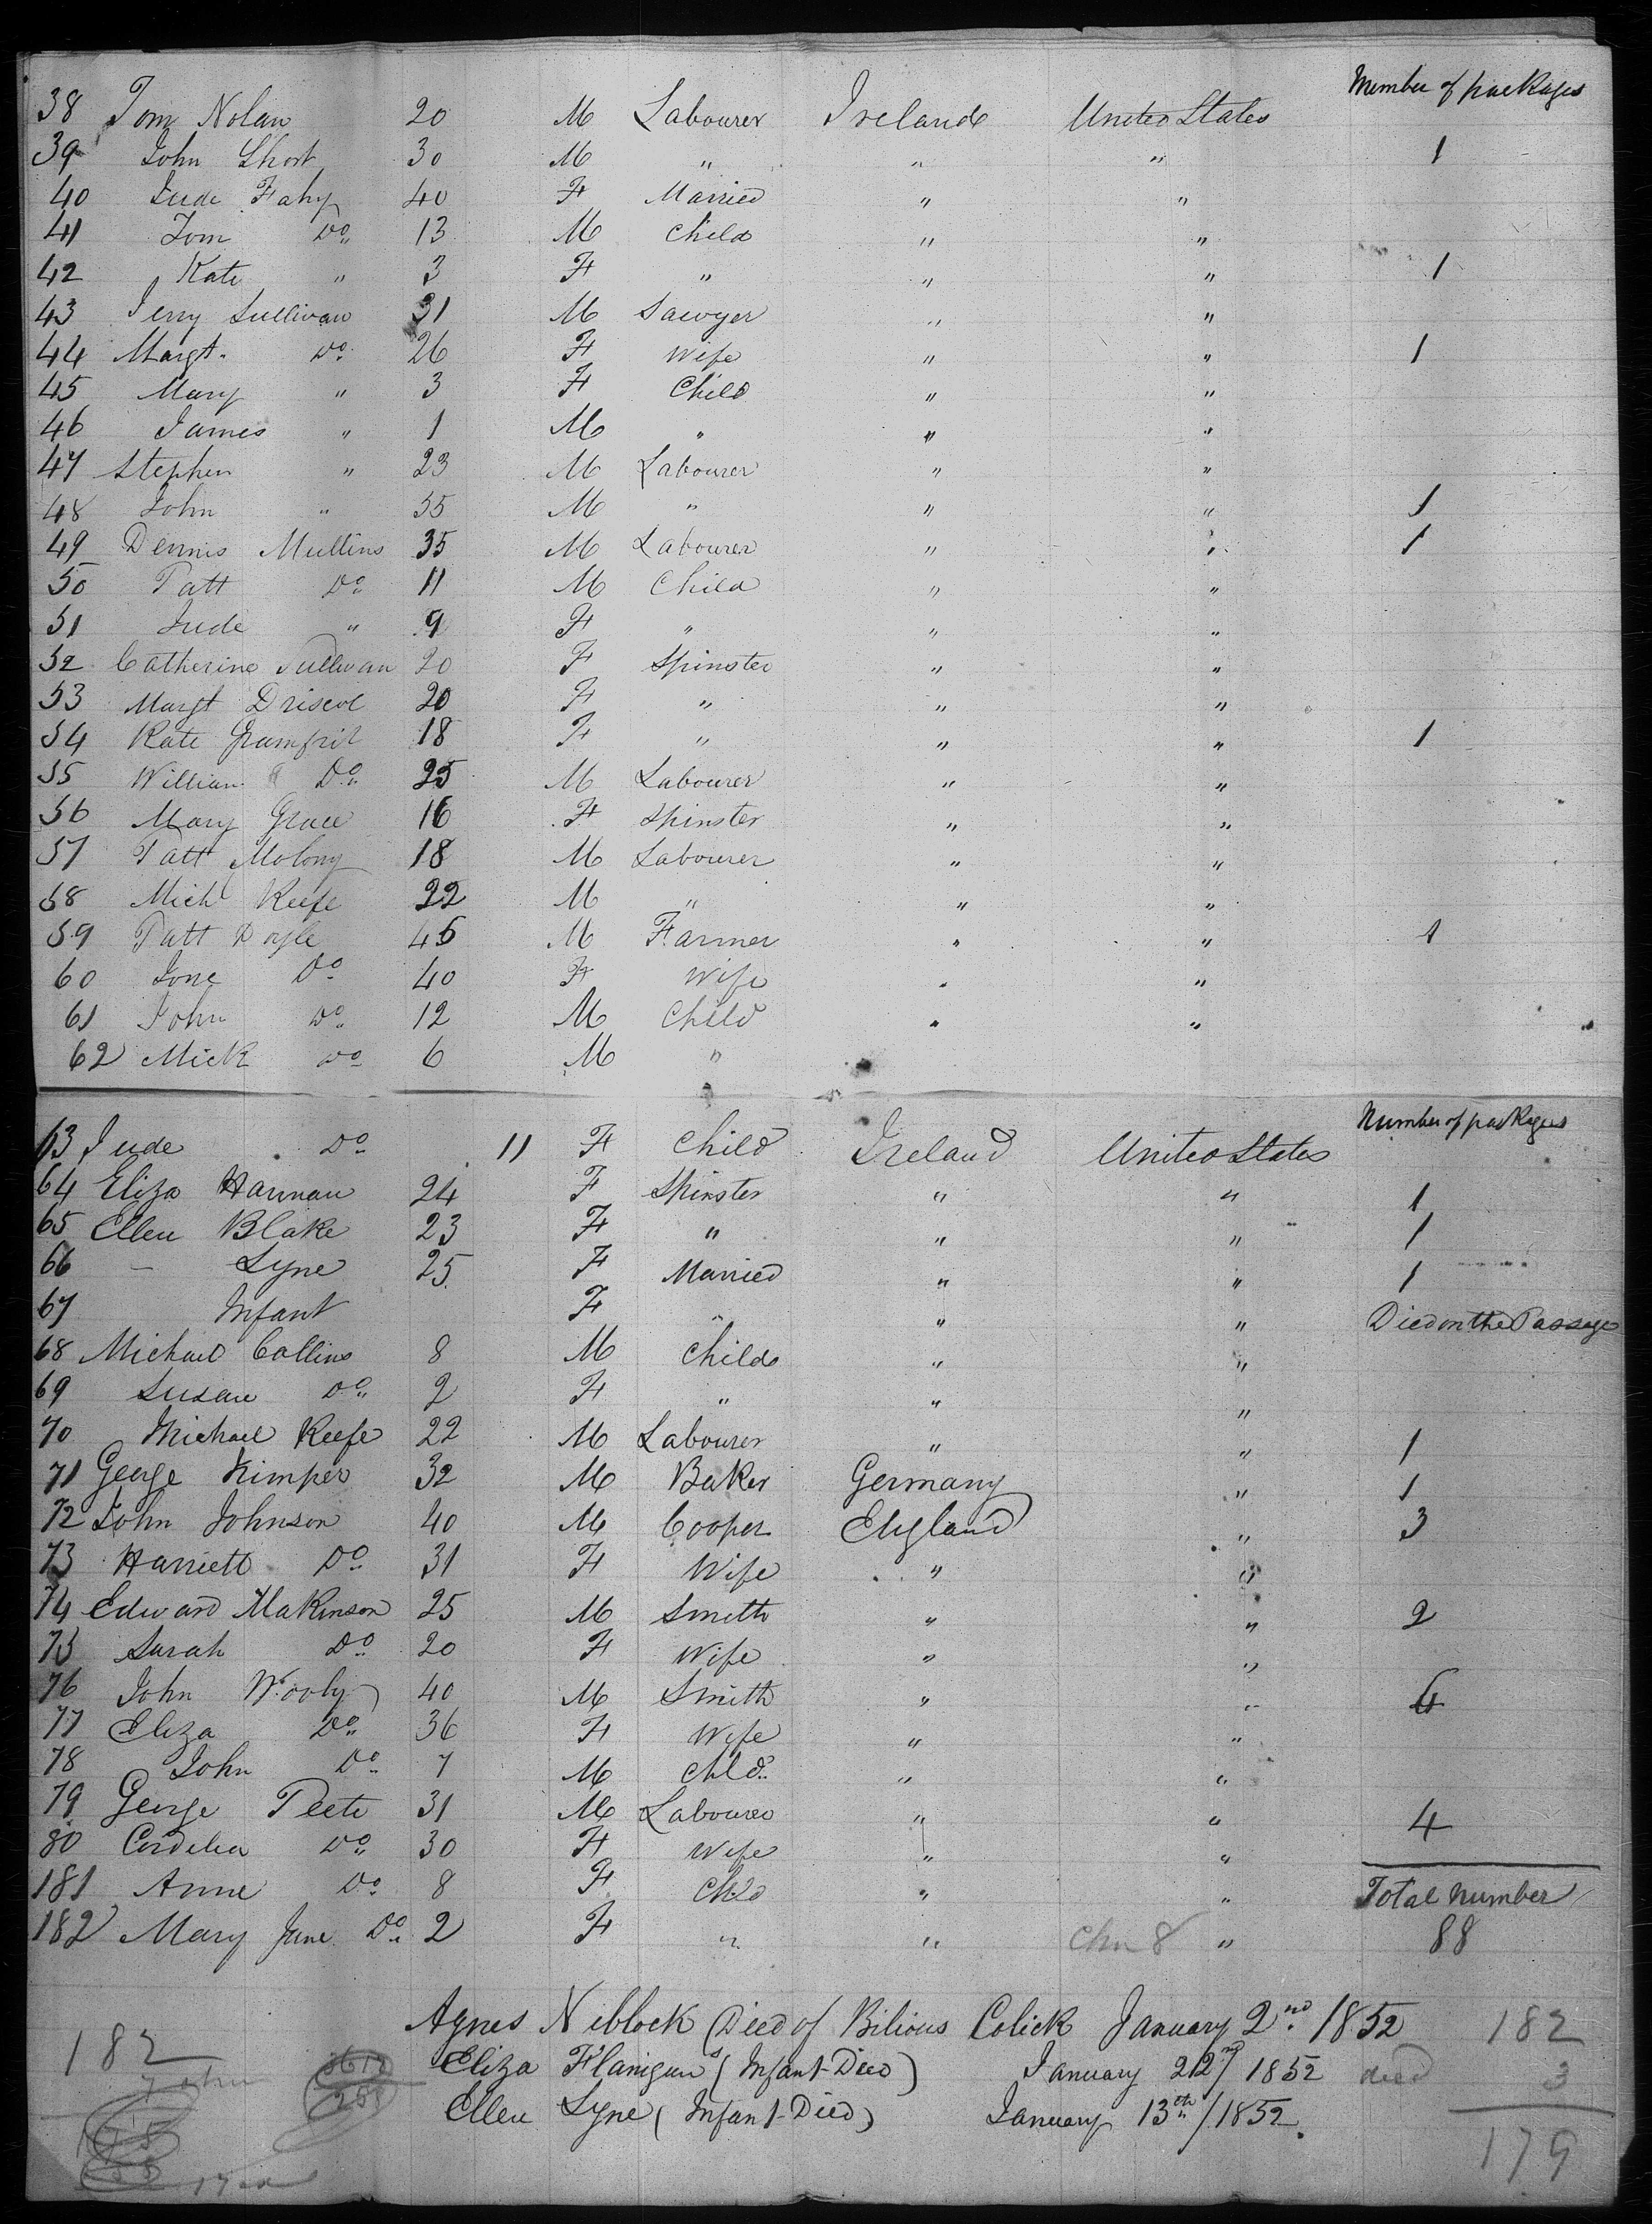 Number of packages
38 Tom Nolan 20 M Labourer Ireland United States
39 John Short 30 M " " " 1
40 Jude Fahy 40 F Married " "
41 Tom Do 13 M Child " "
42 Kate " 3 F " " " 1
43 Jerry Sullivan 31 M Sawyer " "
44 Margt. Do 26 F Wife " " 1
45 Mary " 3 F Child " "
46 James " 1 M " " "
47 Stephen " 23 M Labourer " "
48 John " 35 M " " " 1
49 Dennis Mullins 35 M Labourer " " 1
50 Patt Do 11 M Child " "
51 Jude " 9 F " " "
52 Catherine Sullivan 20 F Spinster " "
53 Margt Driscol 20 F " " "
54 Kate 18 F " " " 1
55 William Do 25 M Labourer " "
56 Mary Grace 16 F Spinster " "
57 Patt Molony 18 M Labourer " "
58 Mich Keefe 22 M " " "
59 Patt Doyle 45 M Farmer " " 1
60 Jone Do 40 F Wife " "
61 John Do 12 M Child " "
62 Mick Do 6 M "
Number of packages
63 Jude Do 11 F Child Ireland United States
64 Eliza Hannan 24 F Spinster " " 1
65 Ellen Blake 23 F " " " 1
66 – Lyne 25 F Married " " 1
67 Infant F " " " Died on the Passage
68 Michael Collins 8 M Child " "
69 Susan Do 2 F " " "
70 Michael Keefe 22 M Labourer " " 1
71 George Kimper 32 M Baker Germany " 1
72 John Johnson 40 M Cooper England " 3
73 Harriett Do 31 F Wife " "
74 Edward Makinson 25 M Smith " " 2
75 Sarah Do 20 F Wife " "
76 John Wooly 40 M Smith " "
77 Eliza Do 36 F Wife " "
78 John Do 7 M Chld " "
79 George Peete 31 M Labourer " " 4
80 Cordelia Do 30 F Wife " "
181 Anne Do 8 F Chld " " Total number
182 Mary Jane Do 2 F " " chn 8 " 88
Agnes Niblock (Died of Bilious Colick January 2nd 1852 182
182 Eliza Flanigan's (Infant Died) January 22nd/1852 died 3
Ellen Lyne (Infant Died) January 13th/1852.
179